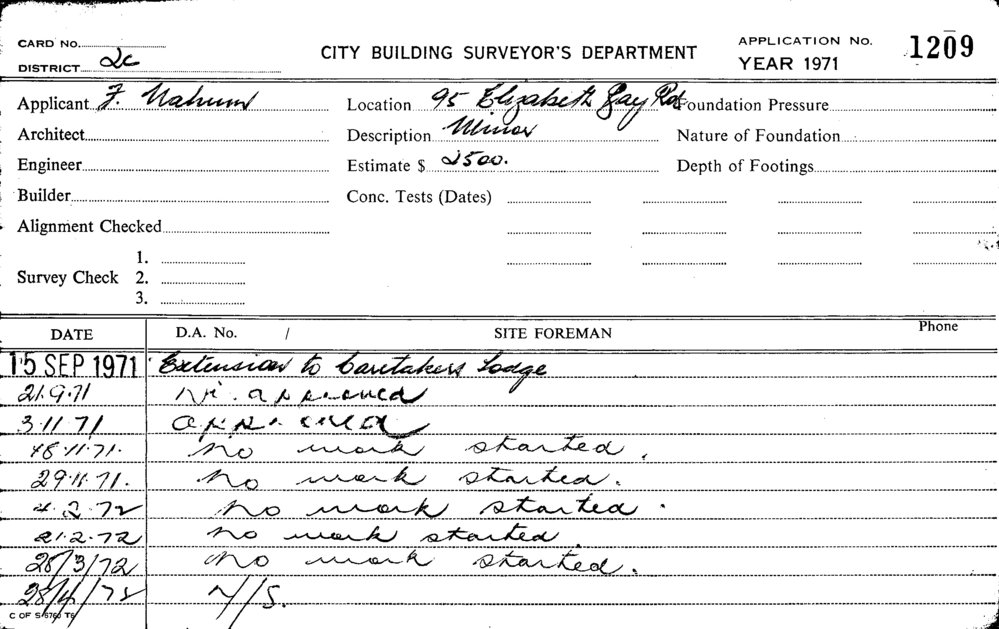 CARD No.
DISTRICT 2c
CITY BUILDING SURVEYOR'S DEPARTMENT
APPLICATION No. 1209
YEAR 1971
Applicant F. Nahum Location 95 Elizabeth Bay Rd Foundation Pressure
Architect Description Minor Nature of Foundation
Engineer Estimate $ 2500. Depth of Footings
Builder Conc. Tests (Dates)
Alignment Checked
1.
Survey Check 2.
3.
DATE D.A. No. / SITE FOREMAN Phone
15 SEP 1971 Extension to Caretakers Lodge
21.9.71 approved
3.11.71 approved
18.11.71. no work started.
29.11.71. no work started.
4.2.72 no work started.
21.2.72 no work started.
28/3/72 no work started.
28/4/72 N/S.
C OF S